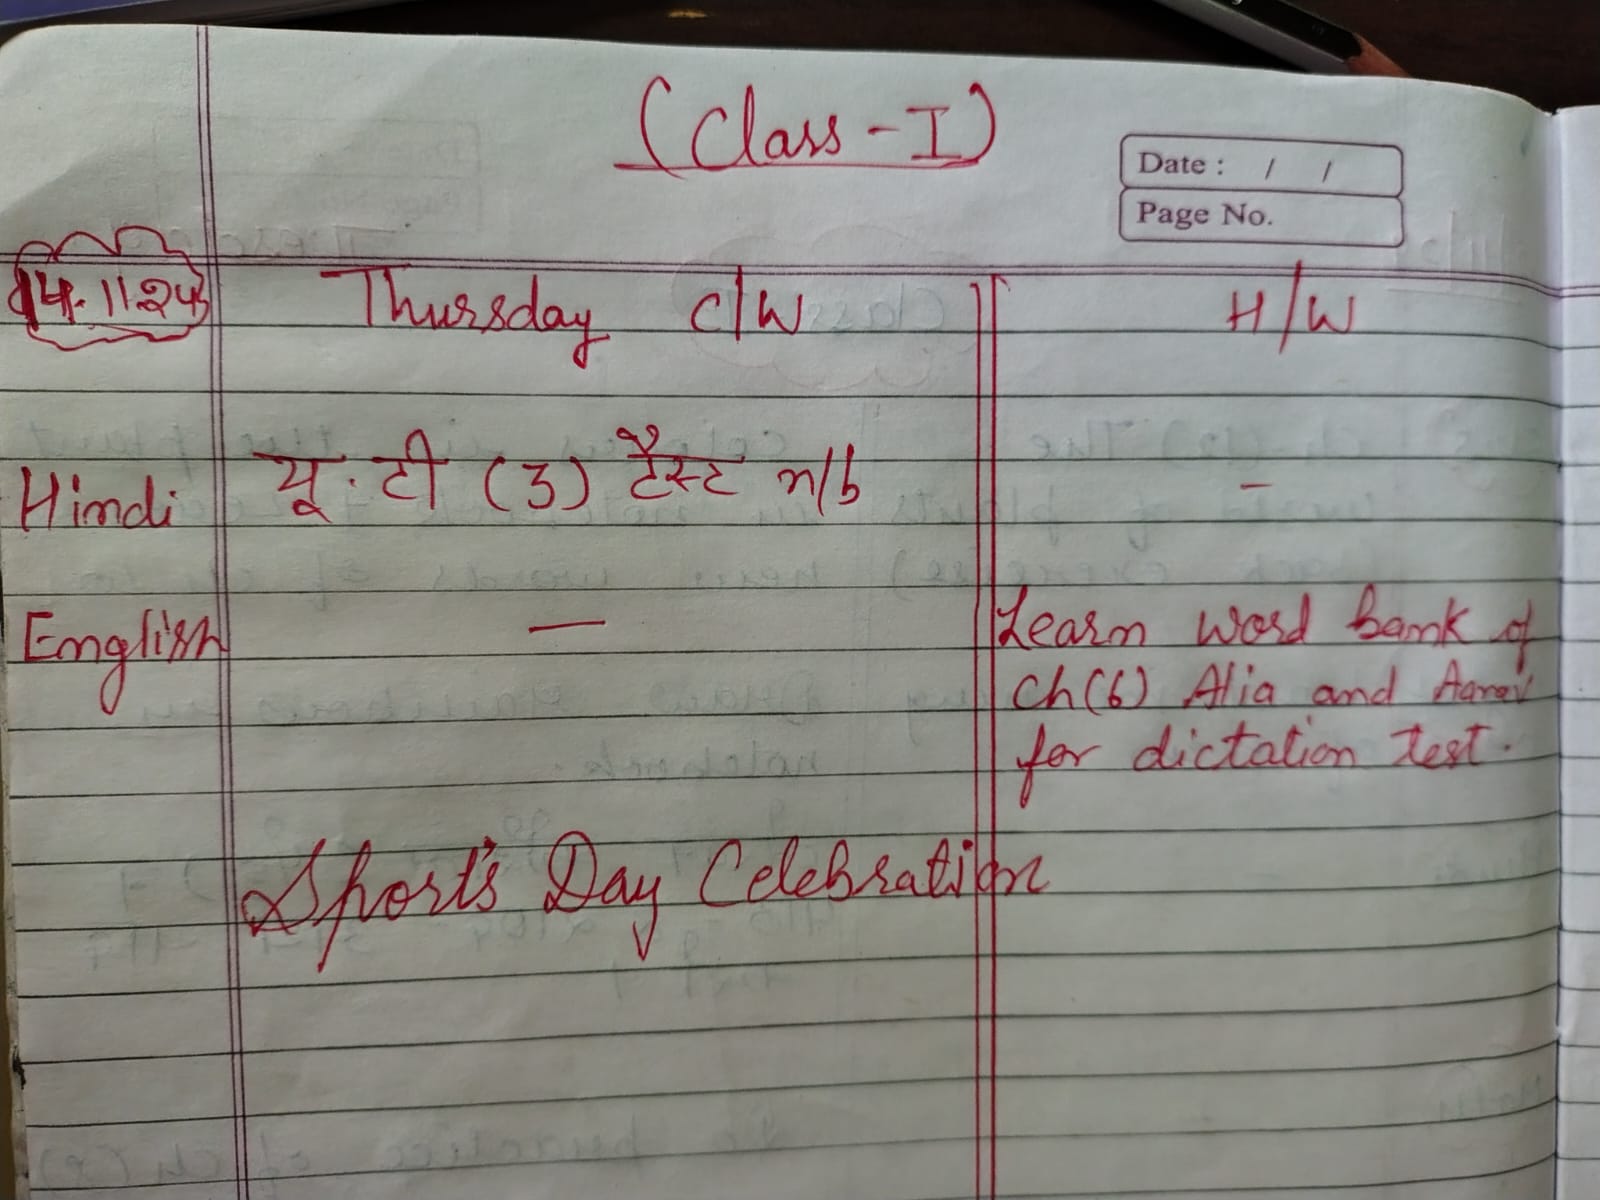 (Class - I)
Date : / /
Page No.
14.11.24 Thursday C/W H/W
Hindi यू. टी (3) टैस्ट n/b –
English — Learn word bank of
Ch(6) Alia and Aarav
for dictation test.
Sports Day Celebration